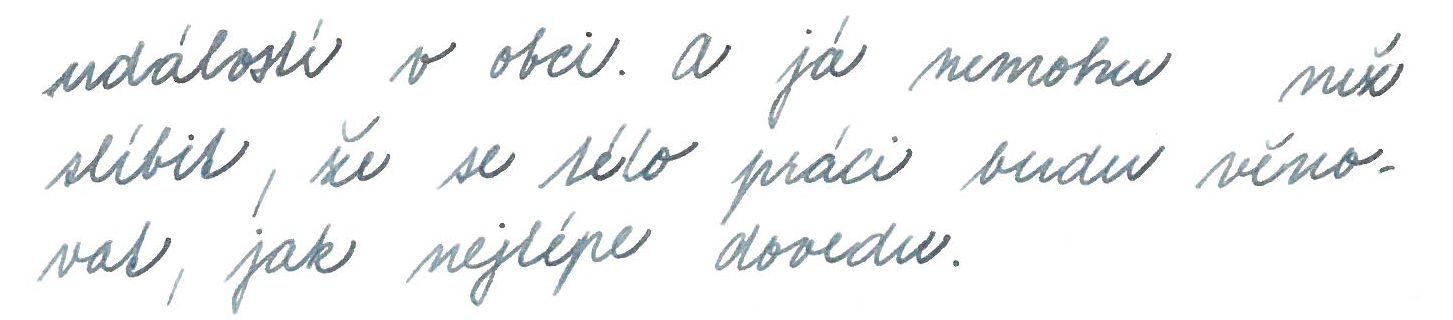 události v obci. A já nemohu než
slíbit, že se této práci budu věno-
vat, jak nejlépe dovedu.